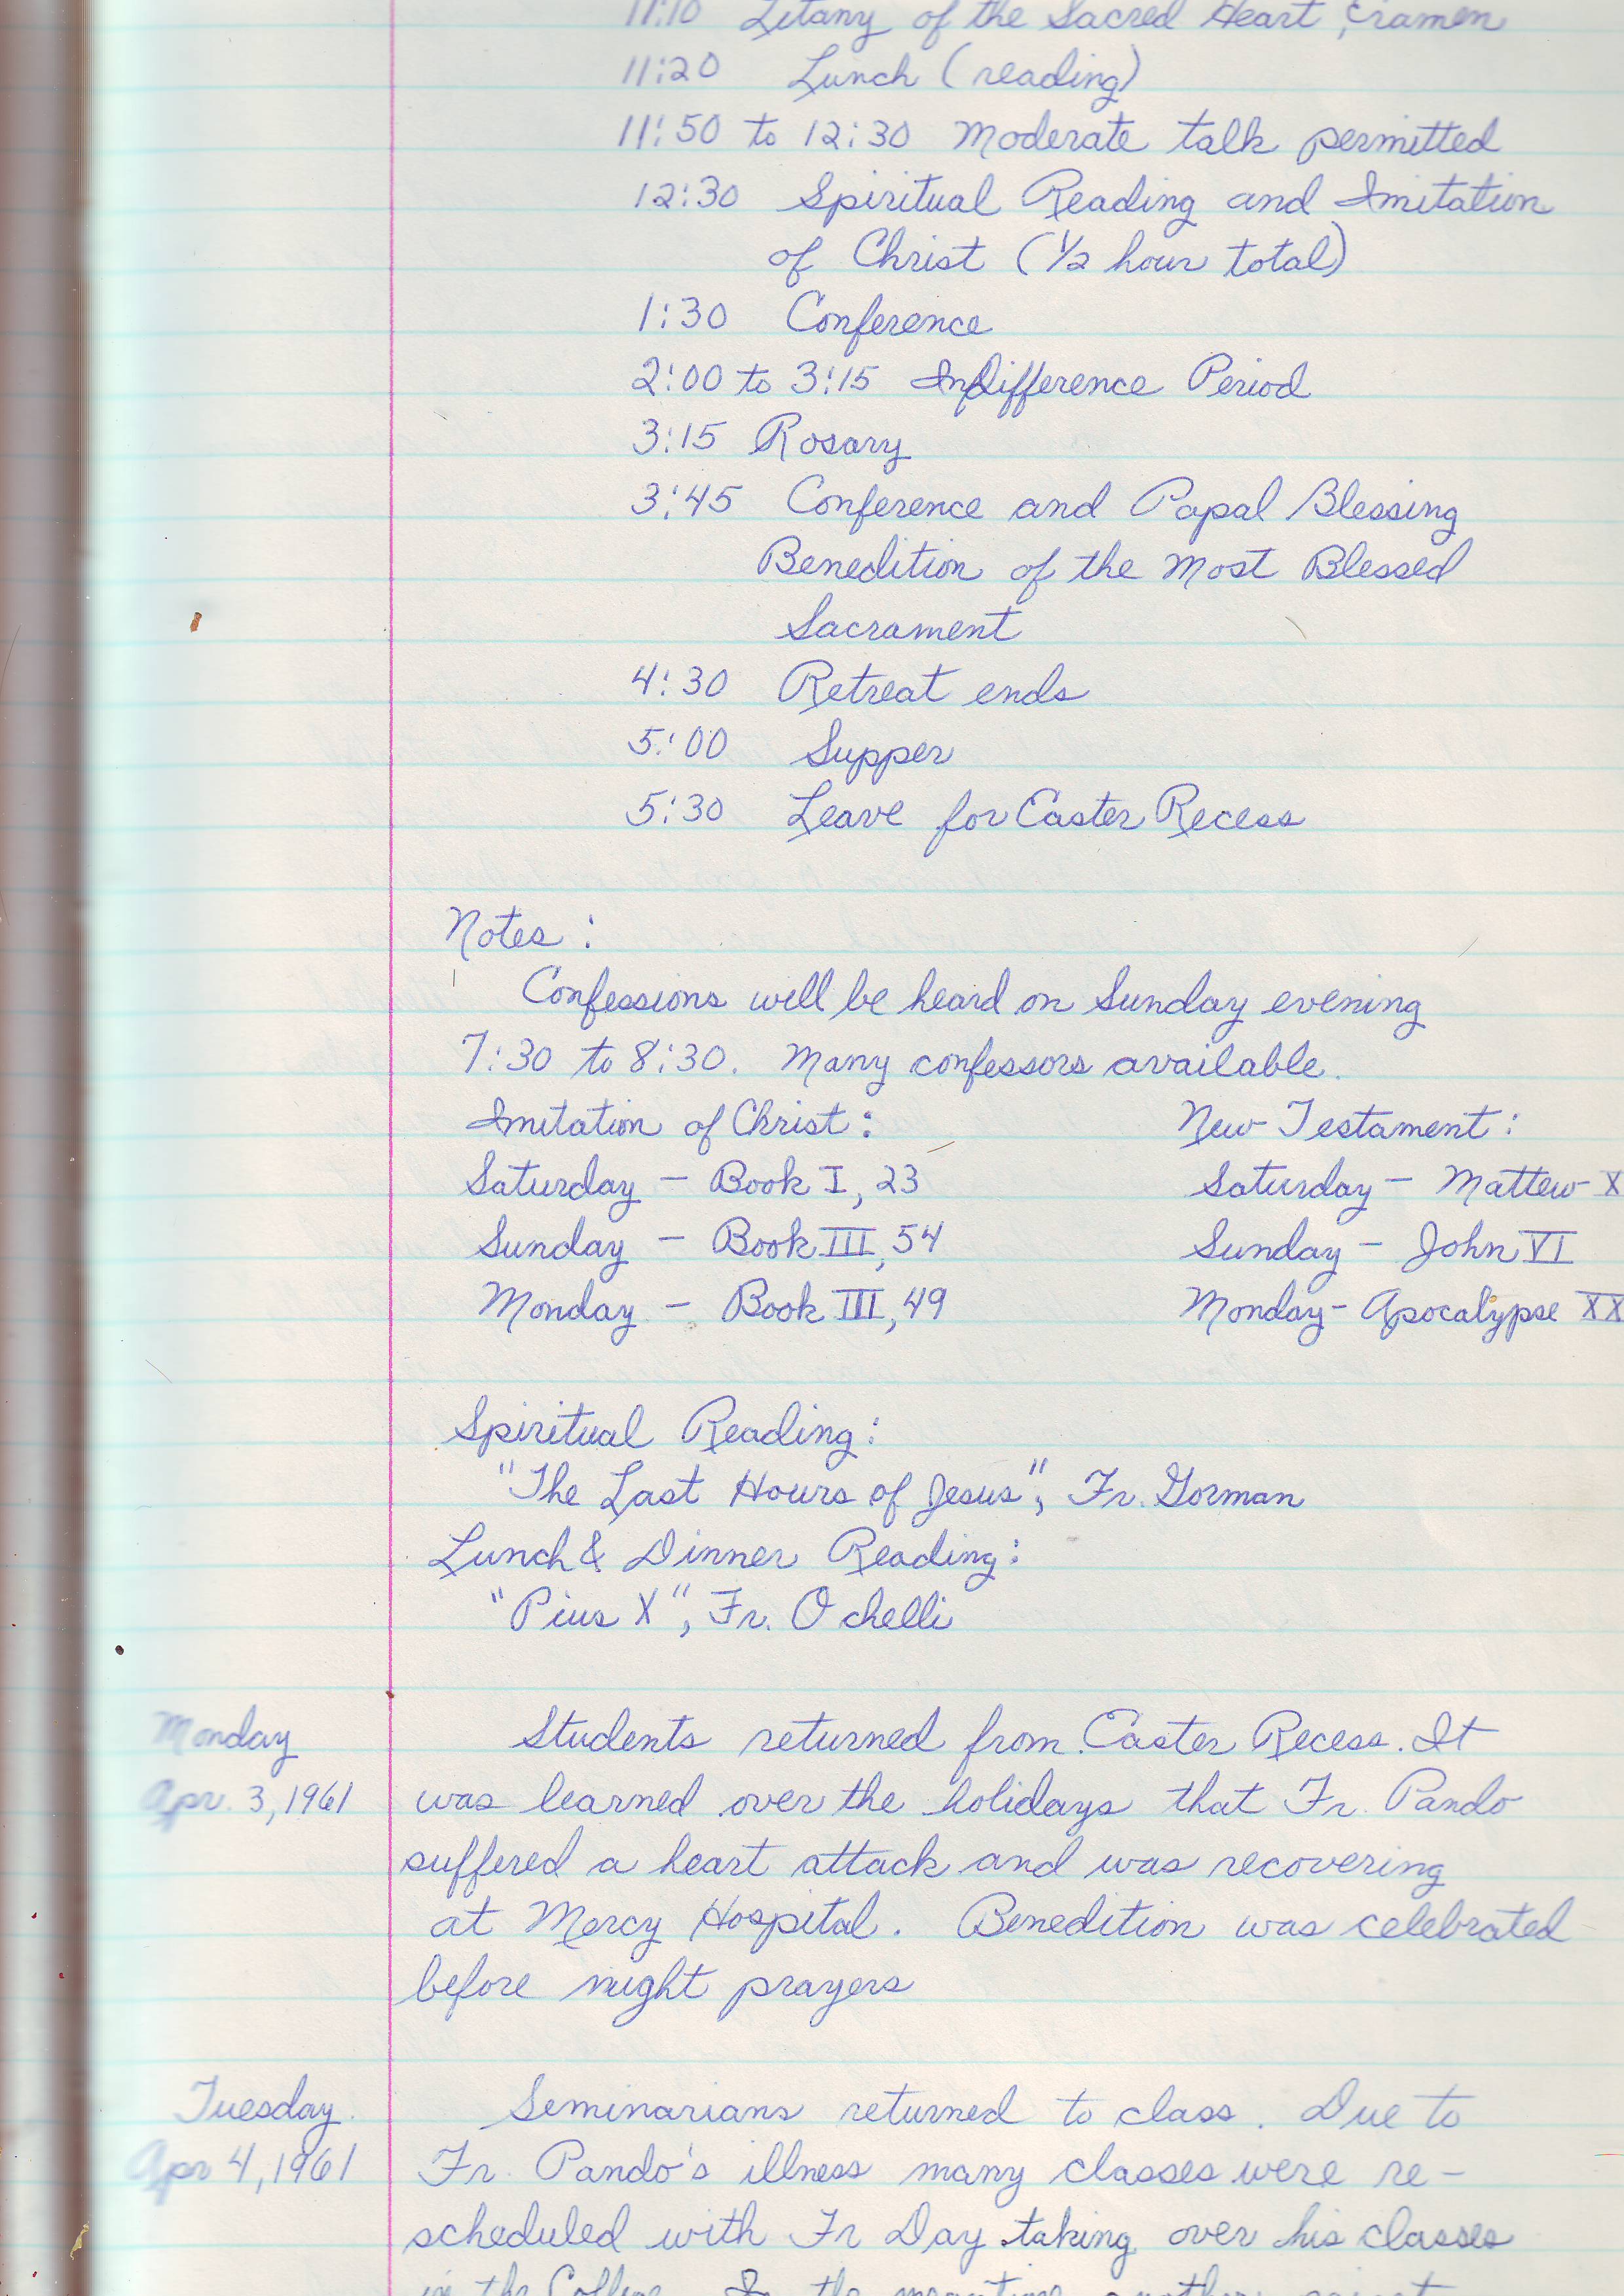 11:10 Litany of the Sacred Heart, examen
11:20 Lunch (reading)
11:50 to 12:30 Moderate talk permitted
12:30 Spiritual Reading and Imitation
of Christ (1/2 hour total)
1:30 Conference
2:00 to 3:15 Indifference Period
3:15 Rosary
3:45 Conference and Papal Blessing
Benedition of the Most Blessed
Sacrament
4:30 Retreat ends
5:00 Supper
5:30 Leave for Easter Recess
Notes:
Confessions will be heard on Sunday evening
7:30 to 8:30. Many confessors available.
Imitation of Christ: New Testament:
Saturday - Book I, 23 Saturday - Mattew X
Sunday - Book III, 54 Sunday - John VI
Monday - Book III, 49 Monday - Apocalypse XX
Spiritual Reading:
"The Last Hours of Jesus", Fr. Gorman
Lunch & Dinner Reading:
"Pius X", Fr. Ochelli
Monday Students returned from Easter Recess. It
Apr. 3, 1961 was learned over the holidays that Fr. Pando
suffered a heart attack and was recovering
at Mercy Hospital. Benedition was celebrated
before night prayers
Tuesday Seminarians returned to class. Due to
Apr 4, 1961 Fr. Pando's illness many classes were re-
scheduled with Fr Day taking over his classes
in the College. In the meantime another priest